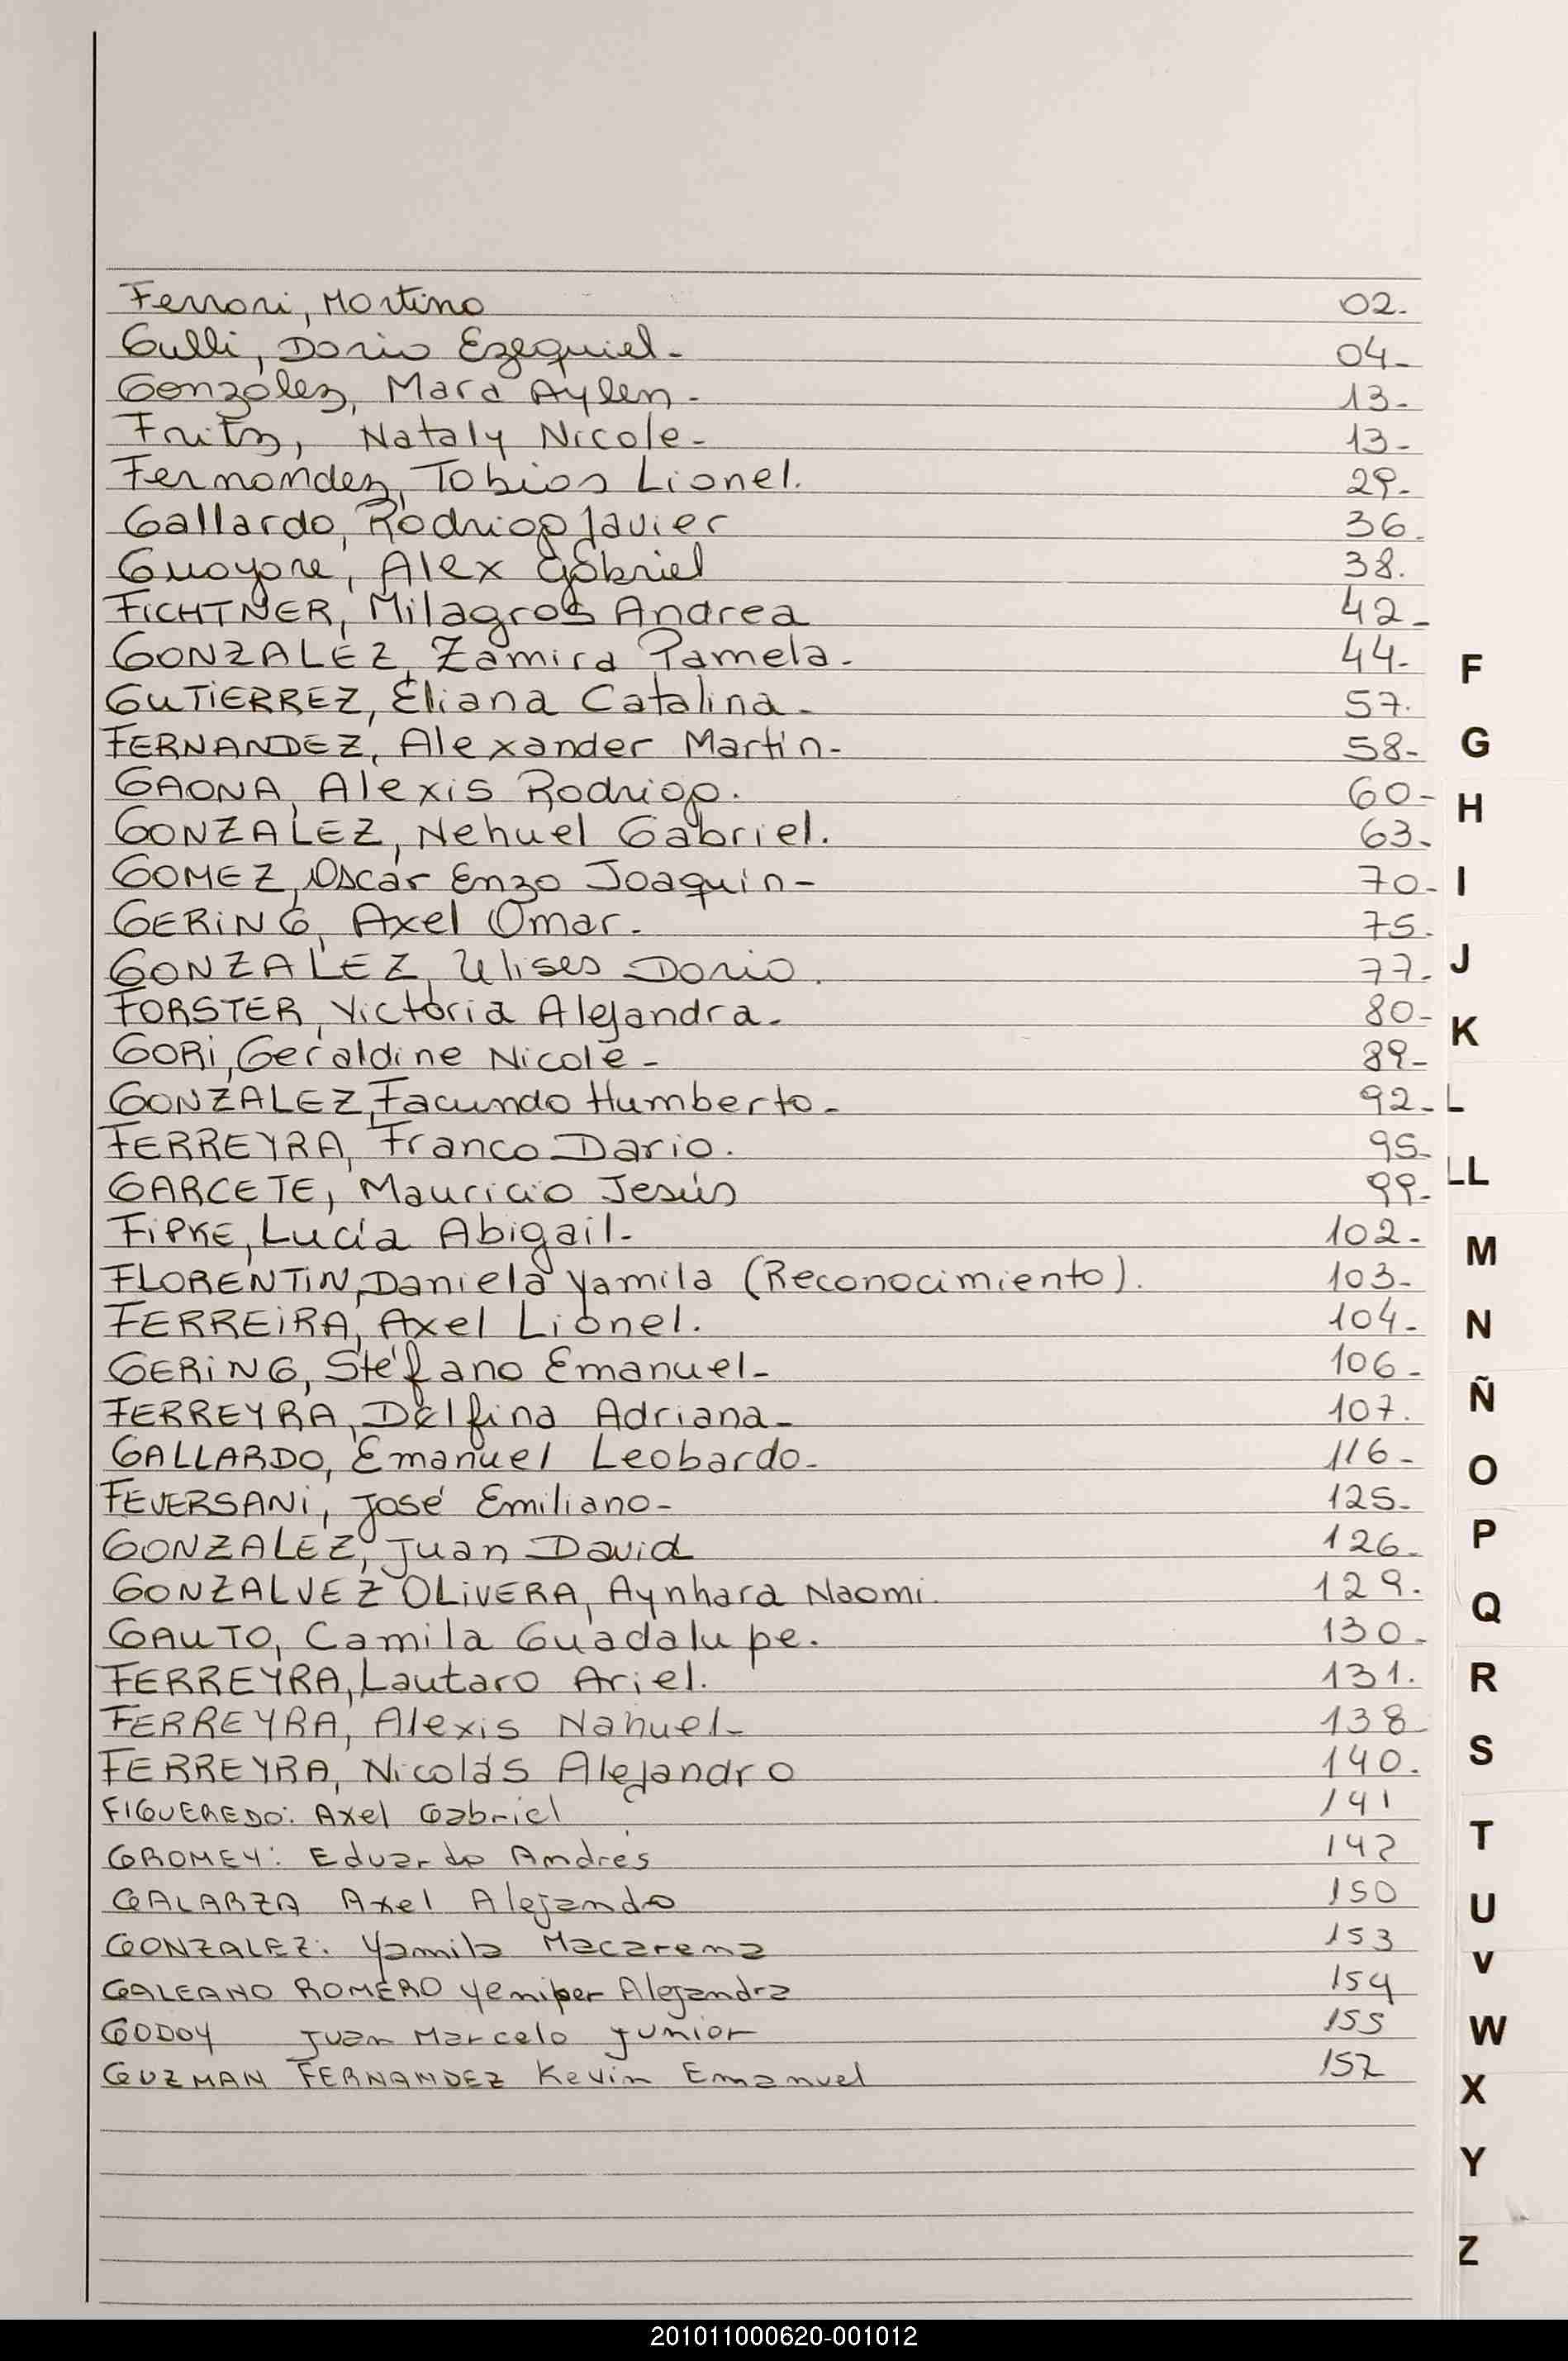 Ferrari, Martina 02.
Gulli, Dario Ezequiel- 04-
González, Mara Aylen- 13-
Fritz, Nataly Nicole- 13-
Fernandez, Tobias Lionel. 29-
Gallardo, Rodrigo Javier 36.
Guayare, Alex Gabriel 38.
FICHTNER, Milagros Andrea 42-
GONZALEZ, Zamira Pamela- 44-
GUTIERREZ, Eliana Catalina- 57.
FERNANDEZ, Alexander Martin- 58-
GAONA, Alexis Rodrigo. 60-
GONZALEZ, Nehuel Gabriel. 63-
GOMEZ, Oscar Enzo Joaquin- 70-
GERING, Axel Omar. 75-
GONZALEZ, Ulises Dario. 77-
FORSTER, Victoria Alejandra- 80-
GORI, Geraldine Nicole- 89-
GONZALEZ, Facundo Humberto- 92-
FERREYRA, Franco Dario. 95-
GARCETE, Mauricio Jesús 99-
FIPKE, Lucía Abigail- 102-
FLORENTIN, Daniela Yamila (Reconocimiento). 103-
FERREIRA, Axel Lionel. 104-
GERING, Stéfano Emanuel- 106-
FERREYRA, Delfina Adriana- 107.
GALLARDO, Emanuel Leobardo- 116-
FEVERSANI, José Emiliano- 125-
GONZALEZ, Juan David 126-
GONZALVEZ OLIVERA, Aynhara Naomi. 129.
GAUTO, Camila Guadalupe. 130-
FERREYRA, Lautaro Ariel. 131.
FERREYRA, Alexis Nahuel- 138-
FERREYRA, Nicolás Alejandro 140.
FIGUEREDO: Axel Gabriel 141
GROMEY: Eduardo Andrés 142
GALARZA Axel Alejandro 150
GONZALEZ: Yamila Macarena 153
GALEANO ROMERO Yeniper Alejandra 154
GODOY Juan Marcelo Junior 155
GUZMAN FERNANDEZ Kevin Emanuel 157
F
G
H
I
J
K
L
LL
M
N
Ñ
O
P
Q
R
S
T
U
V
W
X
Y
Z
201011000620-001012